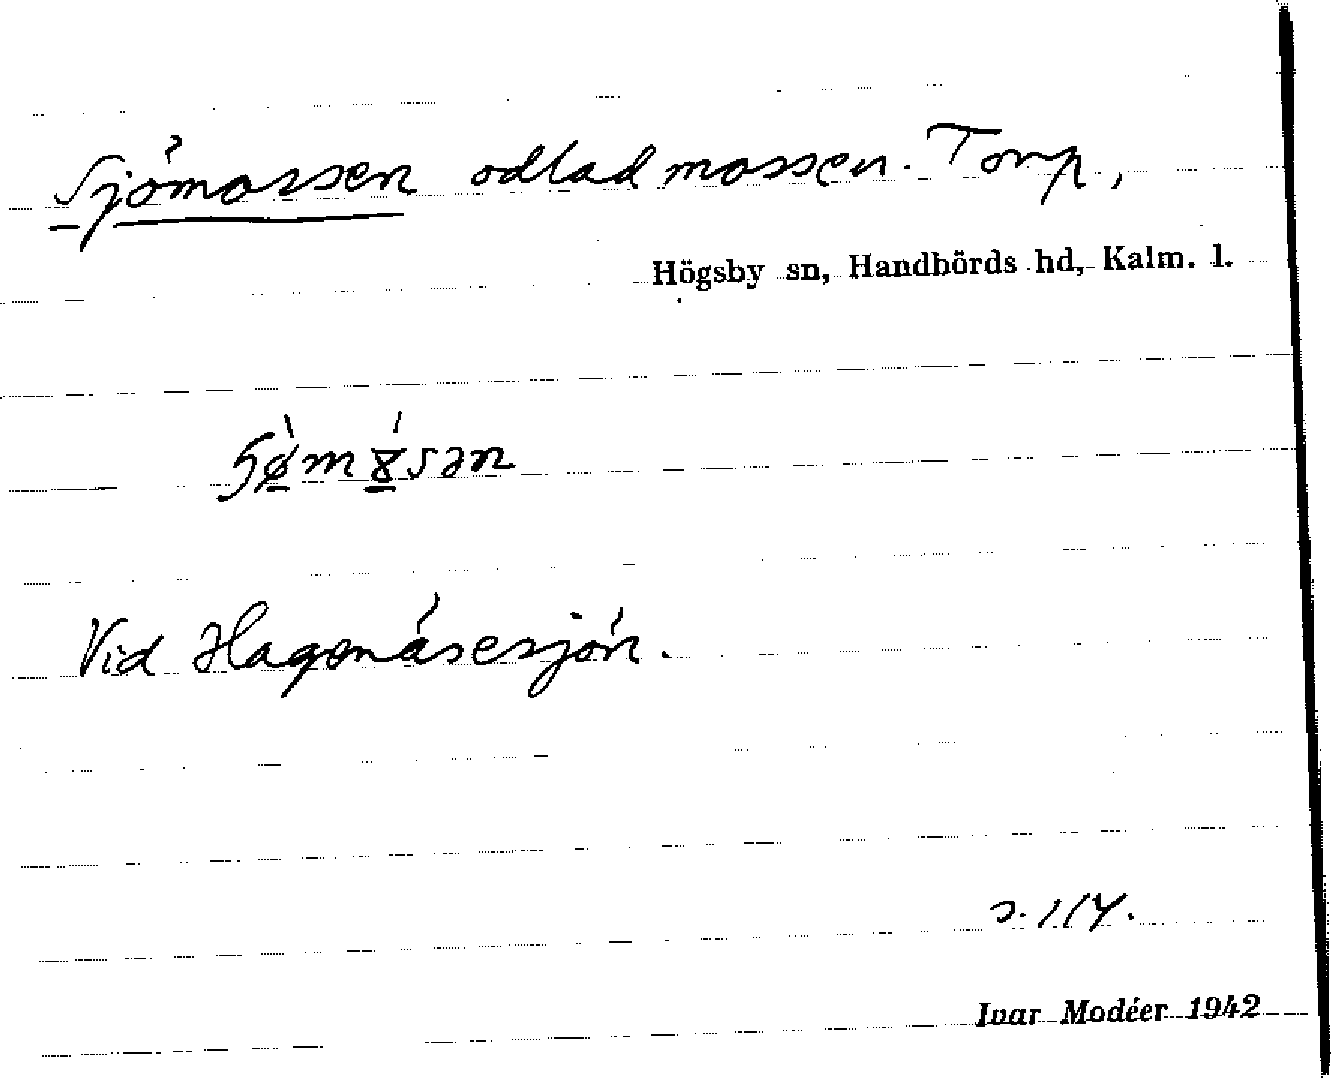 Sjömossen odlad mossen. Torp,
Högsby sn, Handbörds hd, Kalm. l.
Vid Hagenåsesjön.
s. 114.
Ivar Modéer 1942